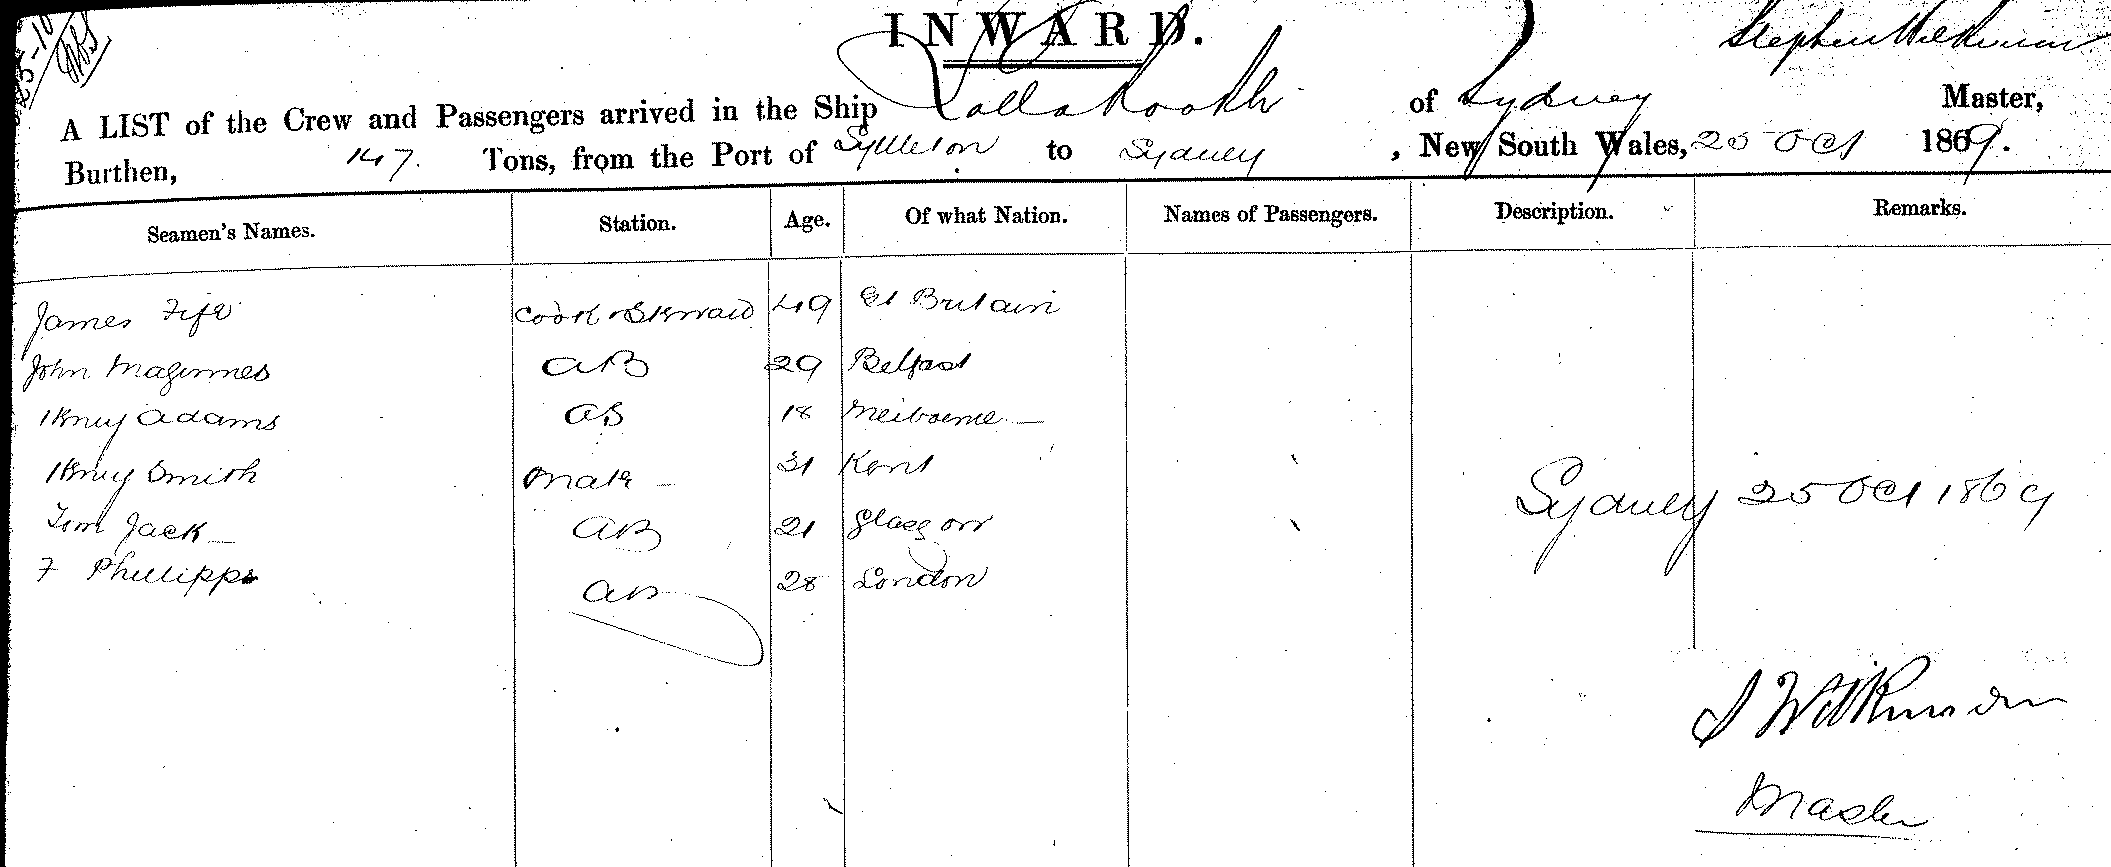 INWARD.
Stephen Wilkinson
A LIST of the Crew and Passengers arrived in the Ship Lalla Rookh of Sydney Master,
Burthen, 147. Tons, from the Port of Lyttleton to Sydney, New South Wales, 25 Oct 1869.
Seamen's Names. Station. Age. Of what Nation. Names of Passengers. Description. Remarks.
James Fife Cook & Steward 49 Gt Britain
John Maginnes AB 29 Belfast
Henry Adams AB 18 Melbourne
Henry Smith Mate 31 Kent
Tom Jack AB 21 Glasgow
F Phillipps AB 28 London
Sydney 25 Oct 1869
S Wilkinson
Master